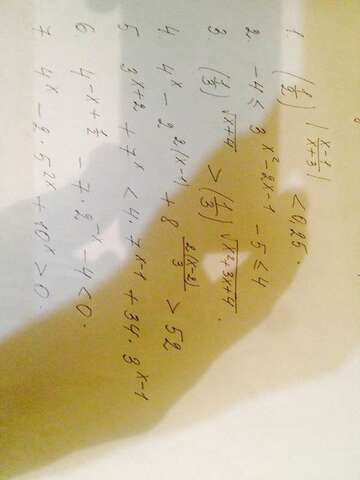 1. (1/2)^|(x-1)/(x+3)| < 0,25.
2. -4 ≤ 3^(x²-2x-1) - 5 < 4
3 (1/3)^√(x+4) > (1/3)^√(x²+3x+4).
4. 4^x - 2^(2(x-1)) + 8^(2(x-2)/3) > 52
5 3^(x+2) + 7^x < 4·7^(x-1) + 34·3^(x-1)
6. 4^(-x+1/2) - 7·2^(-x) - 4 < 0.
7 4^x - 2·5^(2x) + 10^x > 0.